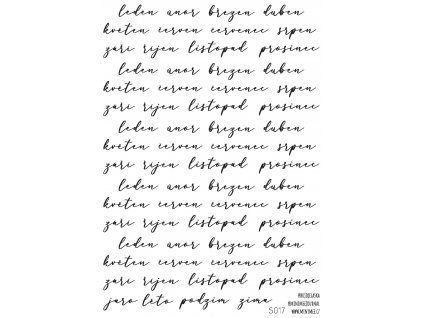 leden unor brezen duben
kveten cerven cervenec srpen
zari rijen listopad prosinec
leden unor brezen duben
kveten cerven cervenec srpen
zari rijen listopad prosinec
leden unor brezen duben
kveten cerven cervenec srpen
zari rijen listopad prosinec
leden unor brezen duben
kveten cerven cervenec srpen
zari rijen listopad prosinec
leden unor brezen duben
kveten cerven cervenec srpen
zari rijen listopad prosinec
jaro leto podzim zima
S017
WWW.MINTMEE.CZ